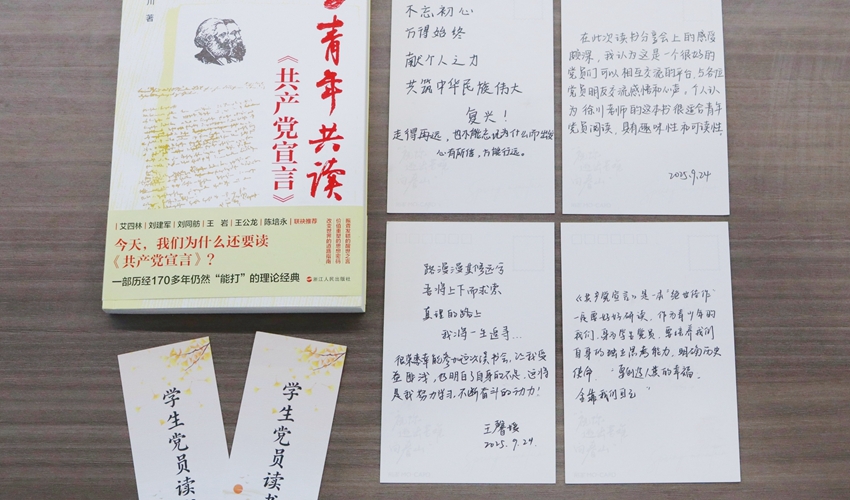 川 著
青年共读
《共产党宣言》
艾四林 | 刘建军 | 刘同舫 | 王 岩 | 王公龙 | 陈培永 | 联袂推荐
今天，我们为什么还要读
《共产党宣言》？
一部历经170多年仍然“能打”的理论经典
浙江人民出版社
学生党员读
学生党员读书
不忘初心
方得始终
献个人之力
共筑中华民族伟大
复兴！
走得再远，也不能忘记为什么而出发
心有所信，方能行远。
在此次读书分享会上的感受
颇深，我认为这是一个很好的
党员们可以相互交流的平台，与各位
党员朋友交流感悟和心声，个人认
为徐川老师的这本书很适合青年
党员阅读，具有趣味性和可读性
2025.9.24
路漫漫其修远兮
吾将上下而求索
真理的路上
我将一生追寻...
很荣幸能参加这次读书会，让我受
益匪浅，也明白了自身的不足，这将
是我努力学习、不断奋斗的动力！
2025.9.24
《共产党宣言》是一本“绝世佳作”
一定要好好研读，作为青少年的
我们，身为学生党员，要培养我们
自身的独立思考能力，明确历史
使命，“要创造人类的幸福，
全靠我们自己”